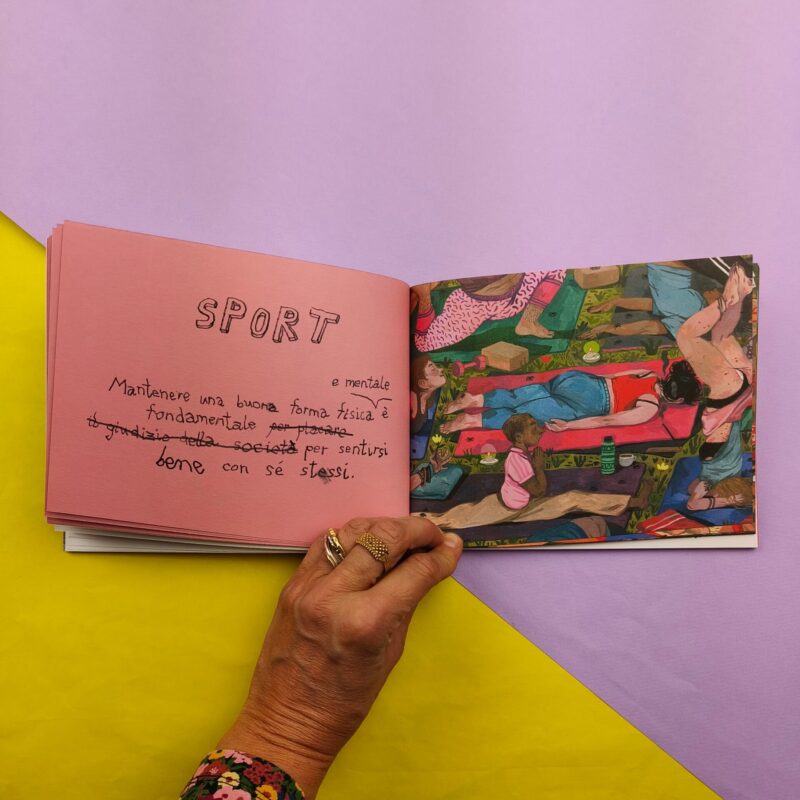 SPORT
e mentale
Mantenere una buona forma fisica è
fondamentale per placare
il giudizio della società per sentirsi
bene con sé stessi.